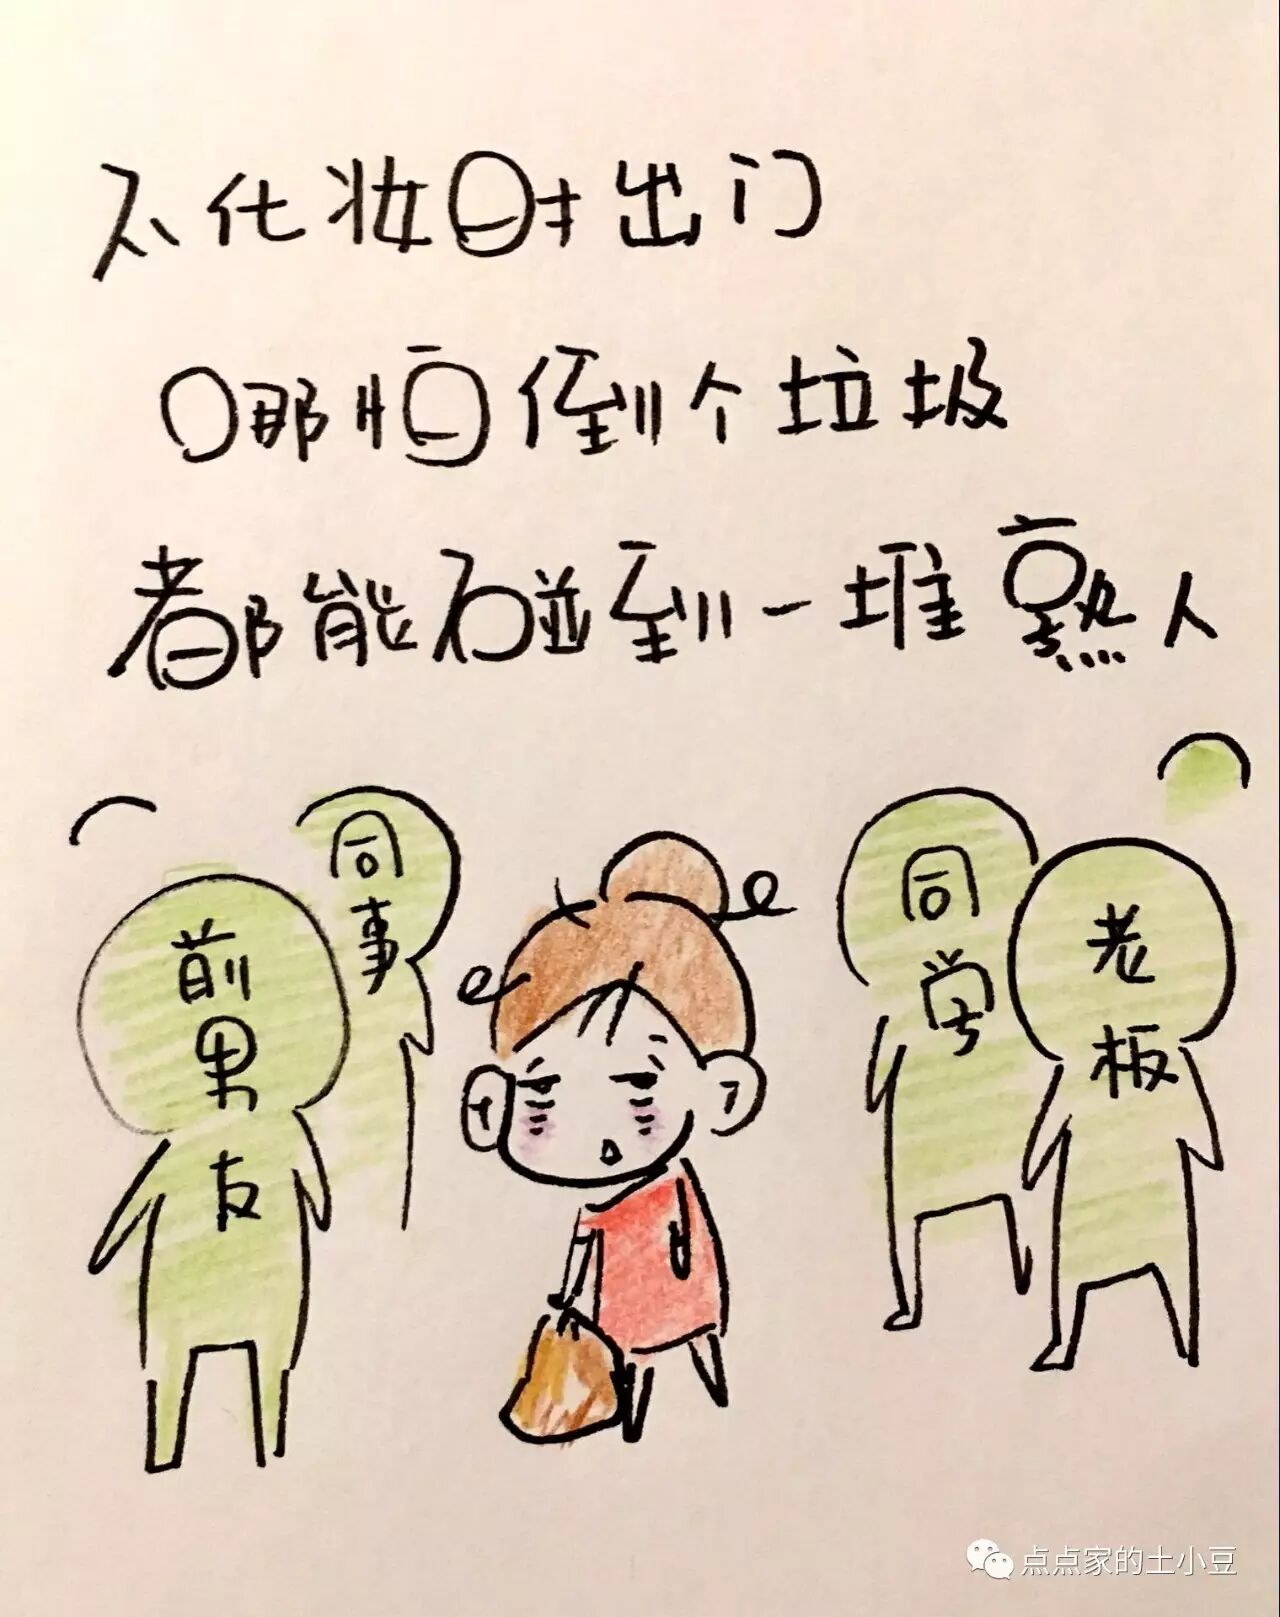 不化妆时出门
哪怕倒个垃圾
都能碰到一堆熟人
前男友
同事
同学
老板
点点家的土小豆